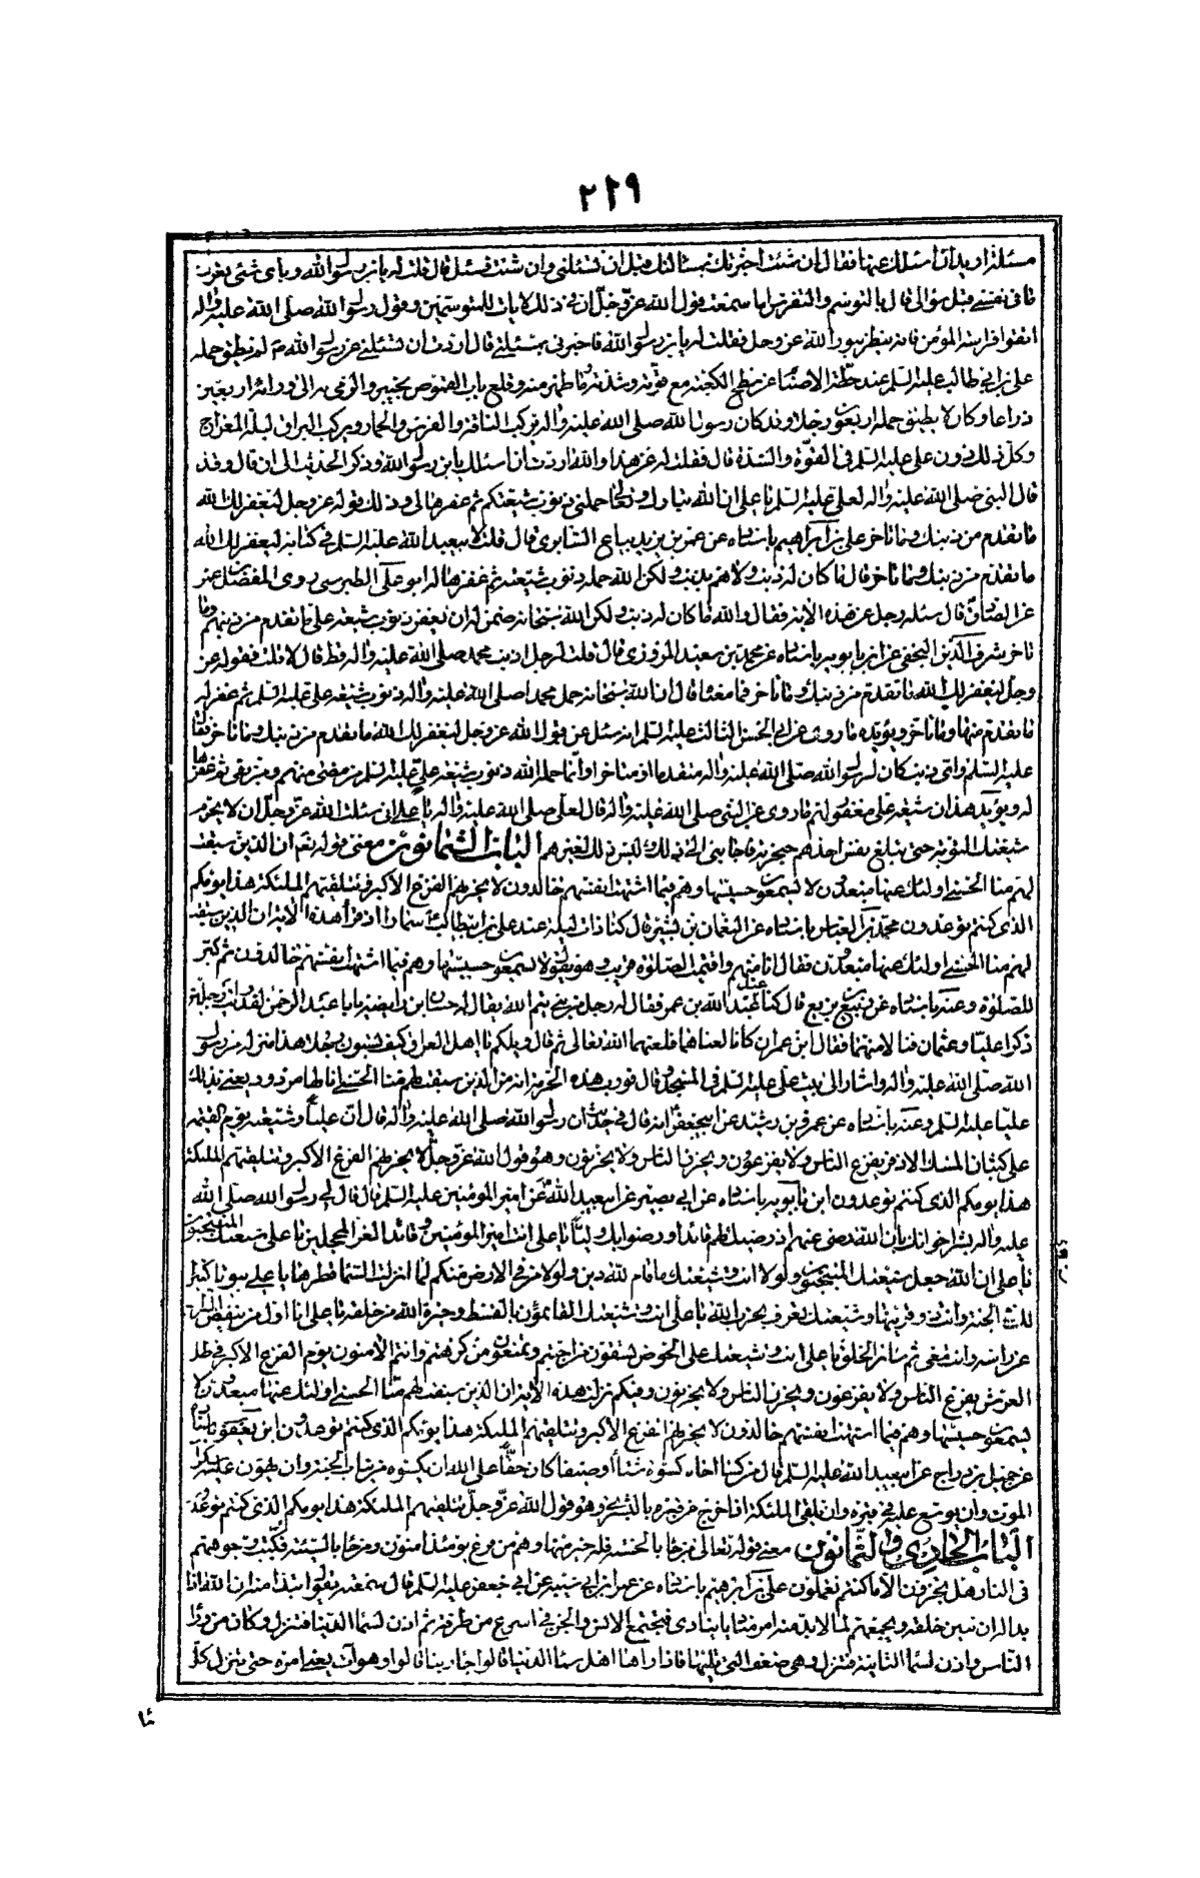 ٢٢٩
مسئلة اريد ان اسئلك عنها فقال ان شئت اخبرتك بمسئلتك قبل ان تسئلني وان شئت فسئل قال قلت له يابن رسول الله وباي شئ تعرف
ما في نفسي قبل سؤالي قال بالتوسم والتفرس اما سمعت قول الله عز وجل ان في ذلك لايات للمتوسمين وقول رسول الله صلى الله عليه واله
اتقوا فراسة المؤمن فانه ينظر بنور الله عز وجل فقلت له يابن رسول الله فاخبرني بمسئلتي قال اردت ان تسئلني عن رسول الله لم لم يطق حمله
علي بن ابي طالب عليه السلم عند حطه الاصنام عن سطح الكعبة مع قوته وشدته وما ظهر منه في قلع باب القموص بخيبر والرمي به الى ورائه اربعين
ذراعا وكان لا يطيق حمله اربعون رجلا وقد كان رسول الله صلى الله عليه واله يركب الناقة والفرس والحمار ويركب البراق ليلة المعراج
وكل ذلك دون علي عليه السلم في القوة والشدة قال فقلت له عن هذا والله اردت ان اسئلك يابن رسول الله وذكر الحديث الى ان قال وقد
قال النبي صلى الله عليه واله لعلي عليه السلم يا علي ان الله تبارك وتعالى حملني ذنوب شيعتكم ثم غفرها لي وذلك قوله عز وجل ليغفر لك الله
ما تقدم من ذنبك وما تاخر علي بن ابراهيم باسناده عن عمر بن يزيد بياع السابري قال قلت لابيعبد الله عليه السلم في كتابه ليغفر لك الله
ما تقدم من ذنبك وما تاخر قال ما كان له ذنب ولا هم بذنب ولكن الله حمله ذنوب شيعته ثم غفرها له ابو علي الطبرسي روى المفضل بن عمر
عن الصادق قال سئله رجل عن هذه الاية فقال والله ما كان له ذنب ولكن الله سبحانه ضمن له ان يغفر ذنوب شيعة علي ما تقدم من ذنبهم وما
تاخر شرف الدين النجفي عن ابن بابويه باسناده عن محمد بن سعيد المروزي قال قلت لرجل اذنب محمد صلى الله عليه واله قط قال لا قلت فقوله عز
وجل ليغفر لك الله ما تقدم من ذنبك وما تاخر فما معناه قال ان الله سبحانه حمل محمدا صلى الله عليه واله ذنوب شيعة علي عليه السلم ثم غفر له
ما تقدم منها وما تاخر ويؤيده ما روى عن ابي الحسن الثالث عليه السلم انه سئل عن قول الله عز وجل ليغفر لك الله ما تقدم من ذنبك وما تاخر فقال
عليه السلم واي ذنب كان لرسول الله صلى الله عليه واله متقدما او متاخرا وانما حمله الله ذنوب شيعة علي عليه السلم من مضى منهم ومن بقى ثم غفرها
له ويؤيد هذا ان شيعة علي مغفور لهم ما روى عن النبي صلى الله عليه واله قال لعلي صلى الله عليه واله يا علي اني سئلت الله عز وجل ان لا يحرم
شيعتك التوبة حتى يبلغ نفس احدهم حنجرته فاجابني الى ذلك وليس ذلك لغيرهم الباب الثمانون معنى قوله تعم ان الذين سبقت
لهم منا الحسنى اولئك عنها مبعدون لا يسمعون حسيسها وهم فيما اشتهت انفسهم خالدون لا يحزنهم الفزع الاكبر وتتلقيهم الملئكة هذا يومكم
الذي كنتم توعدون محمد بن العباس باسناده عن النعمان بن بشير قال كنا ذات ليلة عند علي بن ابيطالب سمارا اذ قرا هذه الاية ان الذين سبقت
لهم منا الحسنى اولئك عنها مبعدون فقال انا منهم واقيمت الصلوة فوثب وهو يقول لا يسمعون حسيسها وهم فيما اشتهت انفسهم خالدون ثم كبر
للصلوة وعنه باسناده عن ربيع بن بزيع قال كنا عند عبد الله بن عمر فقال له رجل من بني تيم الله يقال له حسان ابن رابضه يابا عبد الرحمن لقد رايت رجلين
ذكرا عليا وعثمان فنالا منهما فقال ابن عمر ان كانا لعناهما فلعنهما الله تعالى ثم قال ويلكم يا اهل العراق كيف تسبون رجلا هذا منزله من رسول
الله صلى الله عليه واله واشار الى بيت علي عليه السلم في المسجد وقال فورب هذه الحرمة انه من الذين سبقت لهم منا الحسنى ما لها مردود يعني بذلك
عليا عليه السلم وعنه باسناده عن عمرو بن رشيد عن ابيجعفر انه قال في حديث ان رسول الله صلى الله عليه واله قال ان عليا وشيعته يوم القيمة
على كثبان المسك الاذفر يفزع الناس ولا يفزعون ويحزن الناس ولا يحزنون وهو قول الله عز وجل لا يحزنهم الفزع الاكبر وتتلقيهم الملئكة
هذا يومكم الذي كنتم توعدون ابن بابويه باسناده عن ابي بصير عن ابيعبد الله عن امير المؤمنين عليه السلم قال قال لي رسول الله صلى الله
عليه واله بشر اخوانك بان الله رضى عنهم اذ رضيك لهم قائدا ورضوا بك وليا يا علي انت امير المؤمنين وقائد الغر المحجلين يا علي شيعتك المنتجبون
يا علي ان الله جعل شيعتك المنتجبون ولولا انت وشيعتك ما قام لله دين ولولا من في الارض منكم لما انزلت السماء قطرها يا علي لك كنز
في الجنة وانت ذو قرنيها وشيعتك تعرف بحزب الله يا علي انت وشيعتك القائمون بالقسط وخيرة الله من خلقه يا علي انا اول من ينفض التراب
عن راسه وانت معي ثم سائر الخلق يا علي انت وشيعتك على الحوض تسقون من احببتم وتمنعون من كرهتم وانتم الامنون يوم الفزع الاكبر في ظل
العرش يفزع الناس ولا يفزعون ويحزن الناس ولا يحزنون وفيكم نزلت هذه الاية ان الذين سبقت لهم منا الحسنى اولئك عنها مبعدون لا
يسمعون حسيسها وهم فيما اشتهت انفسهم خالدون لا يحزنهم الفزع الاكبر وتتلقيهم الملئكة هذا يومكم الذي كنتم توعدون ابن يعقوب باسناده
عن جميل بن دراج عن ابيعبد الله عليه السلم قال من كسى اخاه كسوة شتاء او صيف كان حقا على الله ان يكسوه من ثياب الجنة وان يهون عليه سكرات
الموت وان يوسع عليه في قبره وان يلقى الملئكة اذا خرج من قبره بالبشرى وهو قول الله عز وجل تتلقيهم الملئكة هذا يومكم الذي كنتم توعدون
الباب الحادي والثمانون معنى قوله تعالى من جاء بالحسنة فله خير منها وهم من فزع يومئذ امنون ومن جاء بالسيئة فكبت وجوههم
في النار هل يجزون الا ما كنتم تعملون علي بن ابراهيم باسناده عن عمر ابن ابي شيبة عن ابي جعفر عليه السلم قال سمعته يقول ابتداء منه ان الله اذا
بدا له ان يبين خلقه ويجمعهم لما لا بد منه امر مناديا ينادي فيجتمع الانس والجن في اسرع من طرفة ثم اذن لسماء الدنيا فتنزل وكان من وراء
الناس واذن لسماء الثانية فتنزل وهي ضعف التي تليها فاذا راها اهل سماء الدنيا قالوا جاء ربنا قالوا وهو آت يعني امره حتى ينزل كل
سما